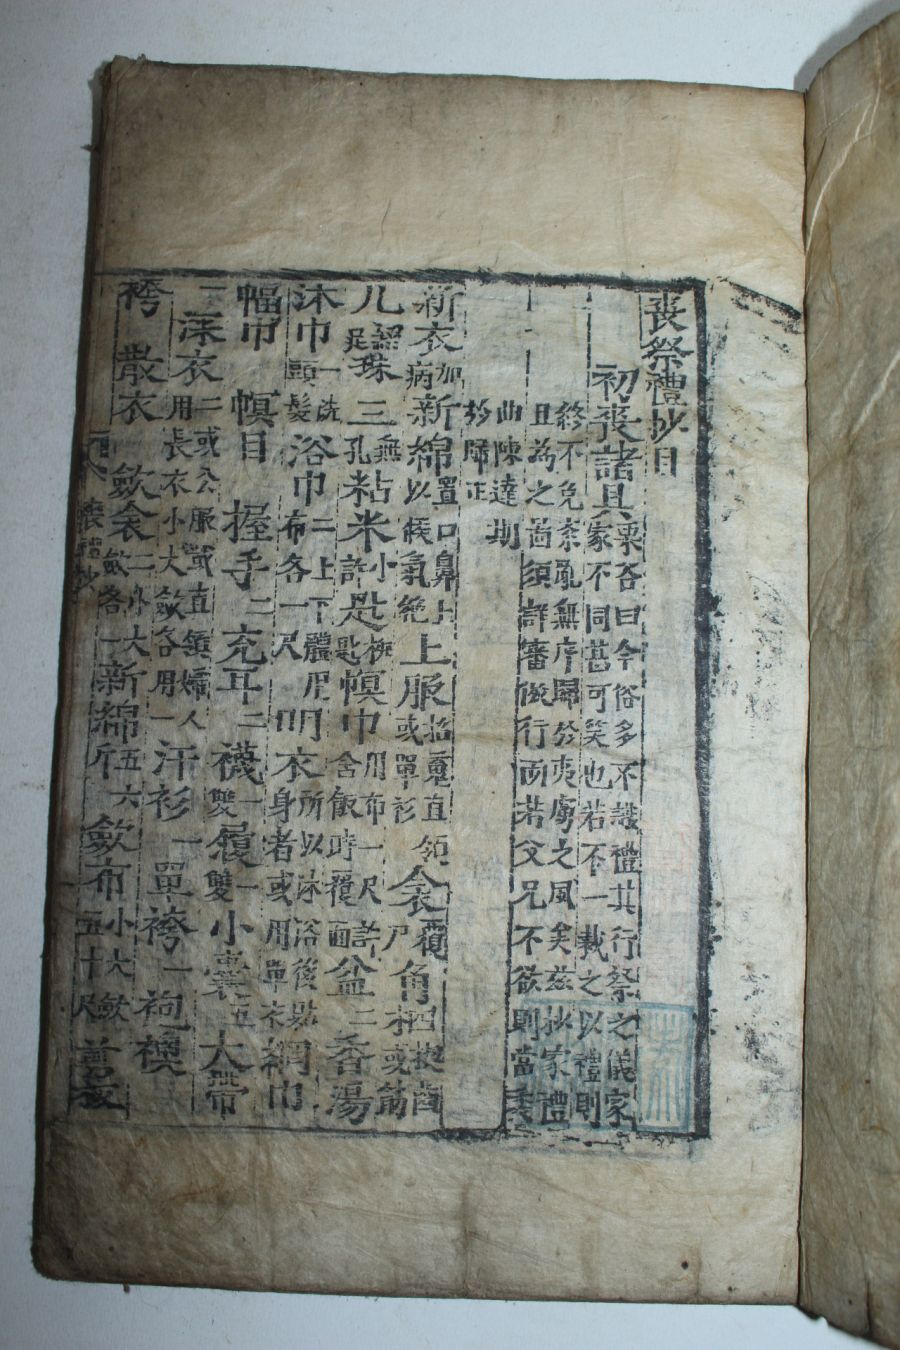 喪祭禮抄目
初喪諸具
栗谷曰今俗多不識禮其行祭之儀家
家不同甚可笑也若不一裁之以禮則
終不免紊亂無序歸於夷虜之風矣玆抄家禮
且爲之啚須詳審倣行而若父兄不欲則當委
曲陳達期
於歸正
新衣加病新綿置口鼻上以候氣絶上服招魂直領或單衫衾覆尸角柶楔齒或筯
几綴足珠三無孔粘米小許匙匙幎巾用布一尺許含飯時覆面盆二香湯
沐巾一洗頭髮浴巾二上下體布各一尺明衣所以沐浴後身者或用單衣網巾
幅巾 幎目 握手二充耳二 襪一雙履一雙小囊五大帶
一深衣二或公服或直領婦人用長衣小大斂各用一汗衫一單袴一袍襖
袴 散衣 斂衾二小大斂各一新綿斤五六斂布小大斂五十尺